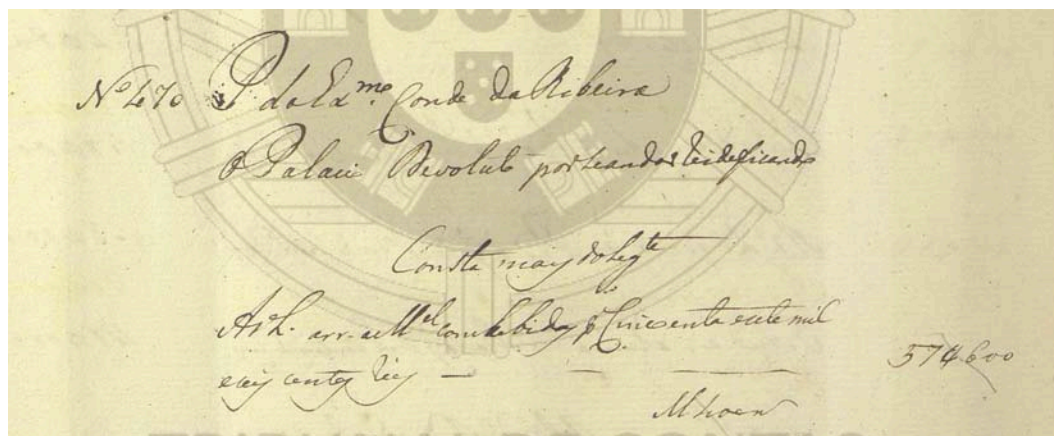 Nº 470 P. do Exmo. Conde da Ribeira
O Palacio Devoluto por se andar reideficando
Consta mais do Segte
arr. a Mel com bebidas pr Cincoenta e sete mil
e seis centos reis — — —— 57$600